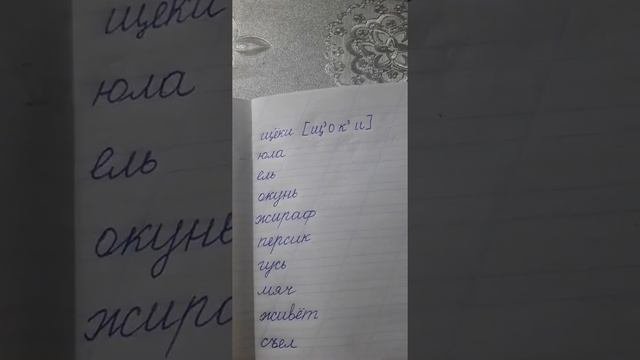 щеки [щ'о к' и]
юла
ель
окунь
жираф
персик
гусь
мяч
живёт
съел